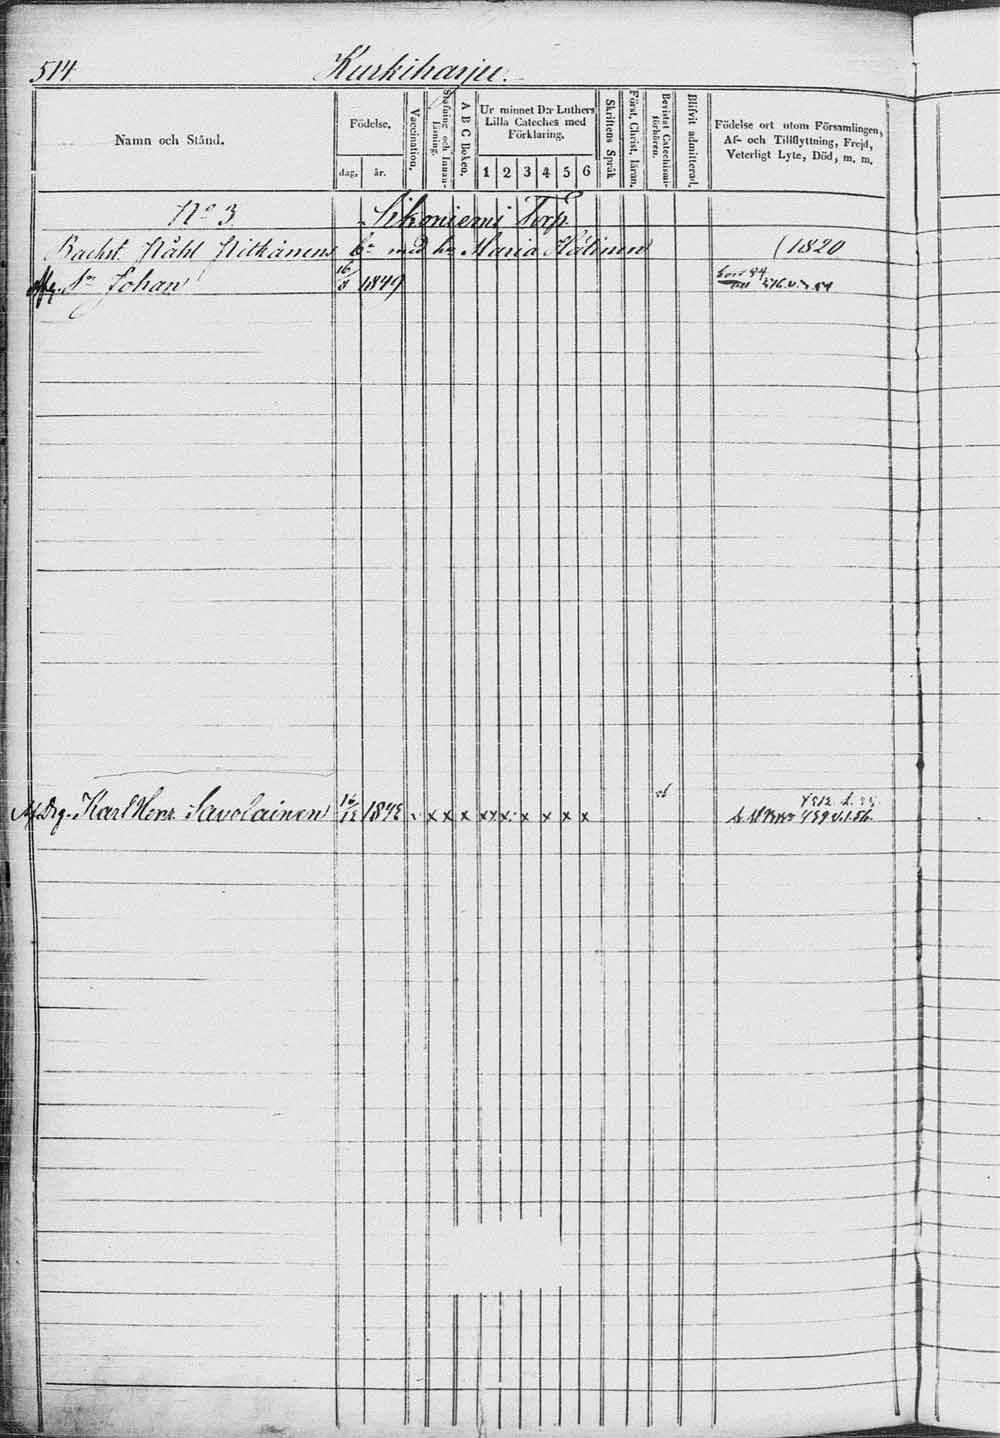 514. Kurkiharju.
Namn och Stånd.
Födelse.
dag. år.
Vaccination.
Stafning och Innan-läsning.
A B C Boken.
Ur minnet D:r Luthers Lilla Cateches med Förklaring.
1 2 3 4 5 6
Skriftens Språk
Först. Christ. läran.
Bevistat Catechismi-förhören.
Blifvit admitterad.
Födelse ort utom Församlingen, Af- och Tillflyttning, Frejd, Veterligt Lyte, Död, m. m.
No 3 Sikoniemi Torp
Bachst. Påhl Pitkänens med Maria Hälinen (1820
Sn Johan 16/3 1849
Drg. Karl Henr. Savolainen 16/12 1842 x x x x x x x x x x